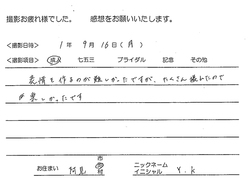 撮影お疲れ様でした。 感想をお願いいたします。
<撮影日時> 1年 9月 16日(月)
<撮影項目> 成人 七五三 ブライダル 記念 その他
表情を作るのが難しかったですが、たくさん撮れたので
楽しかったです
お住まい 阿見 市 町 村 ニックネーム イニシャル Y.K